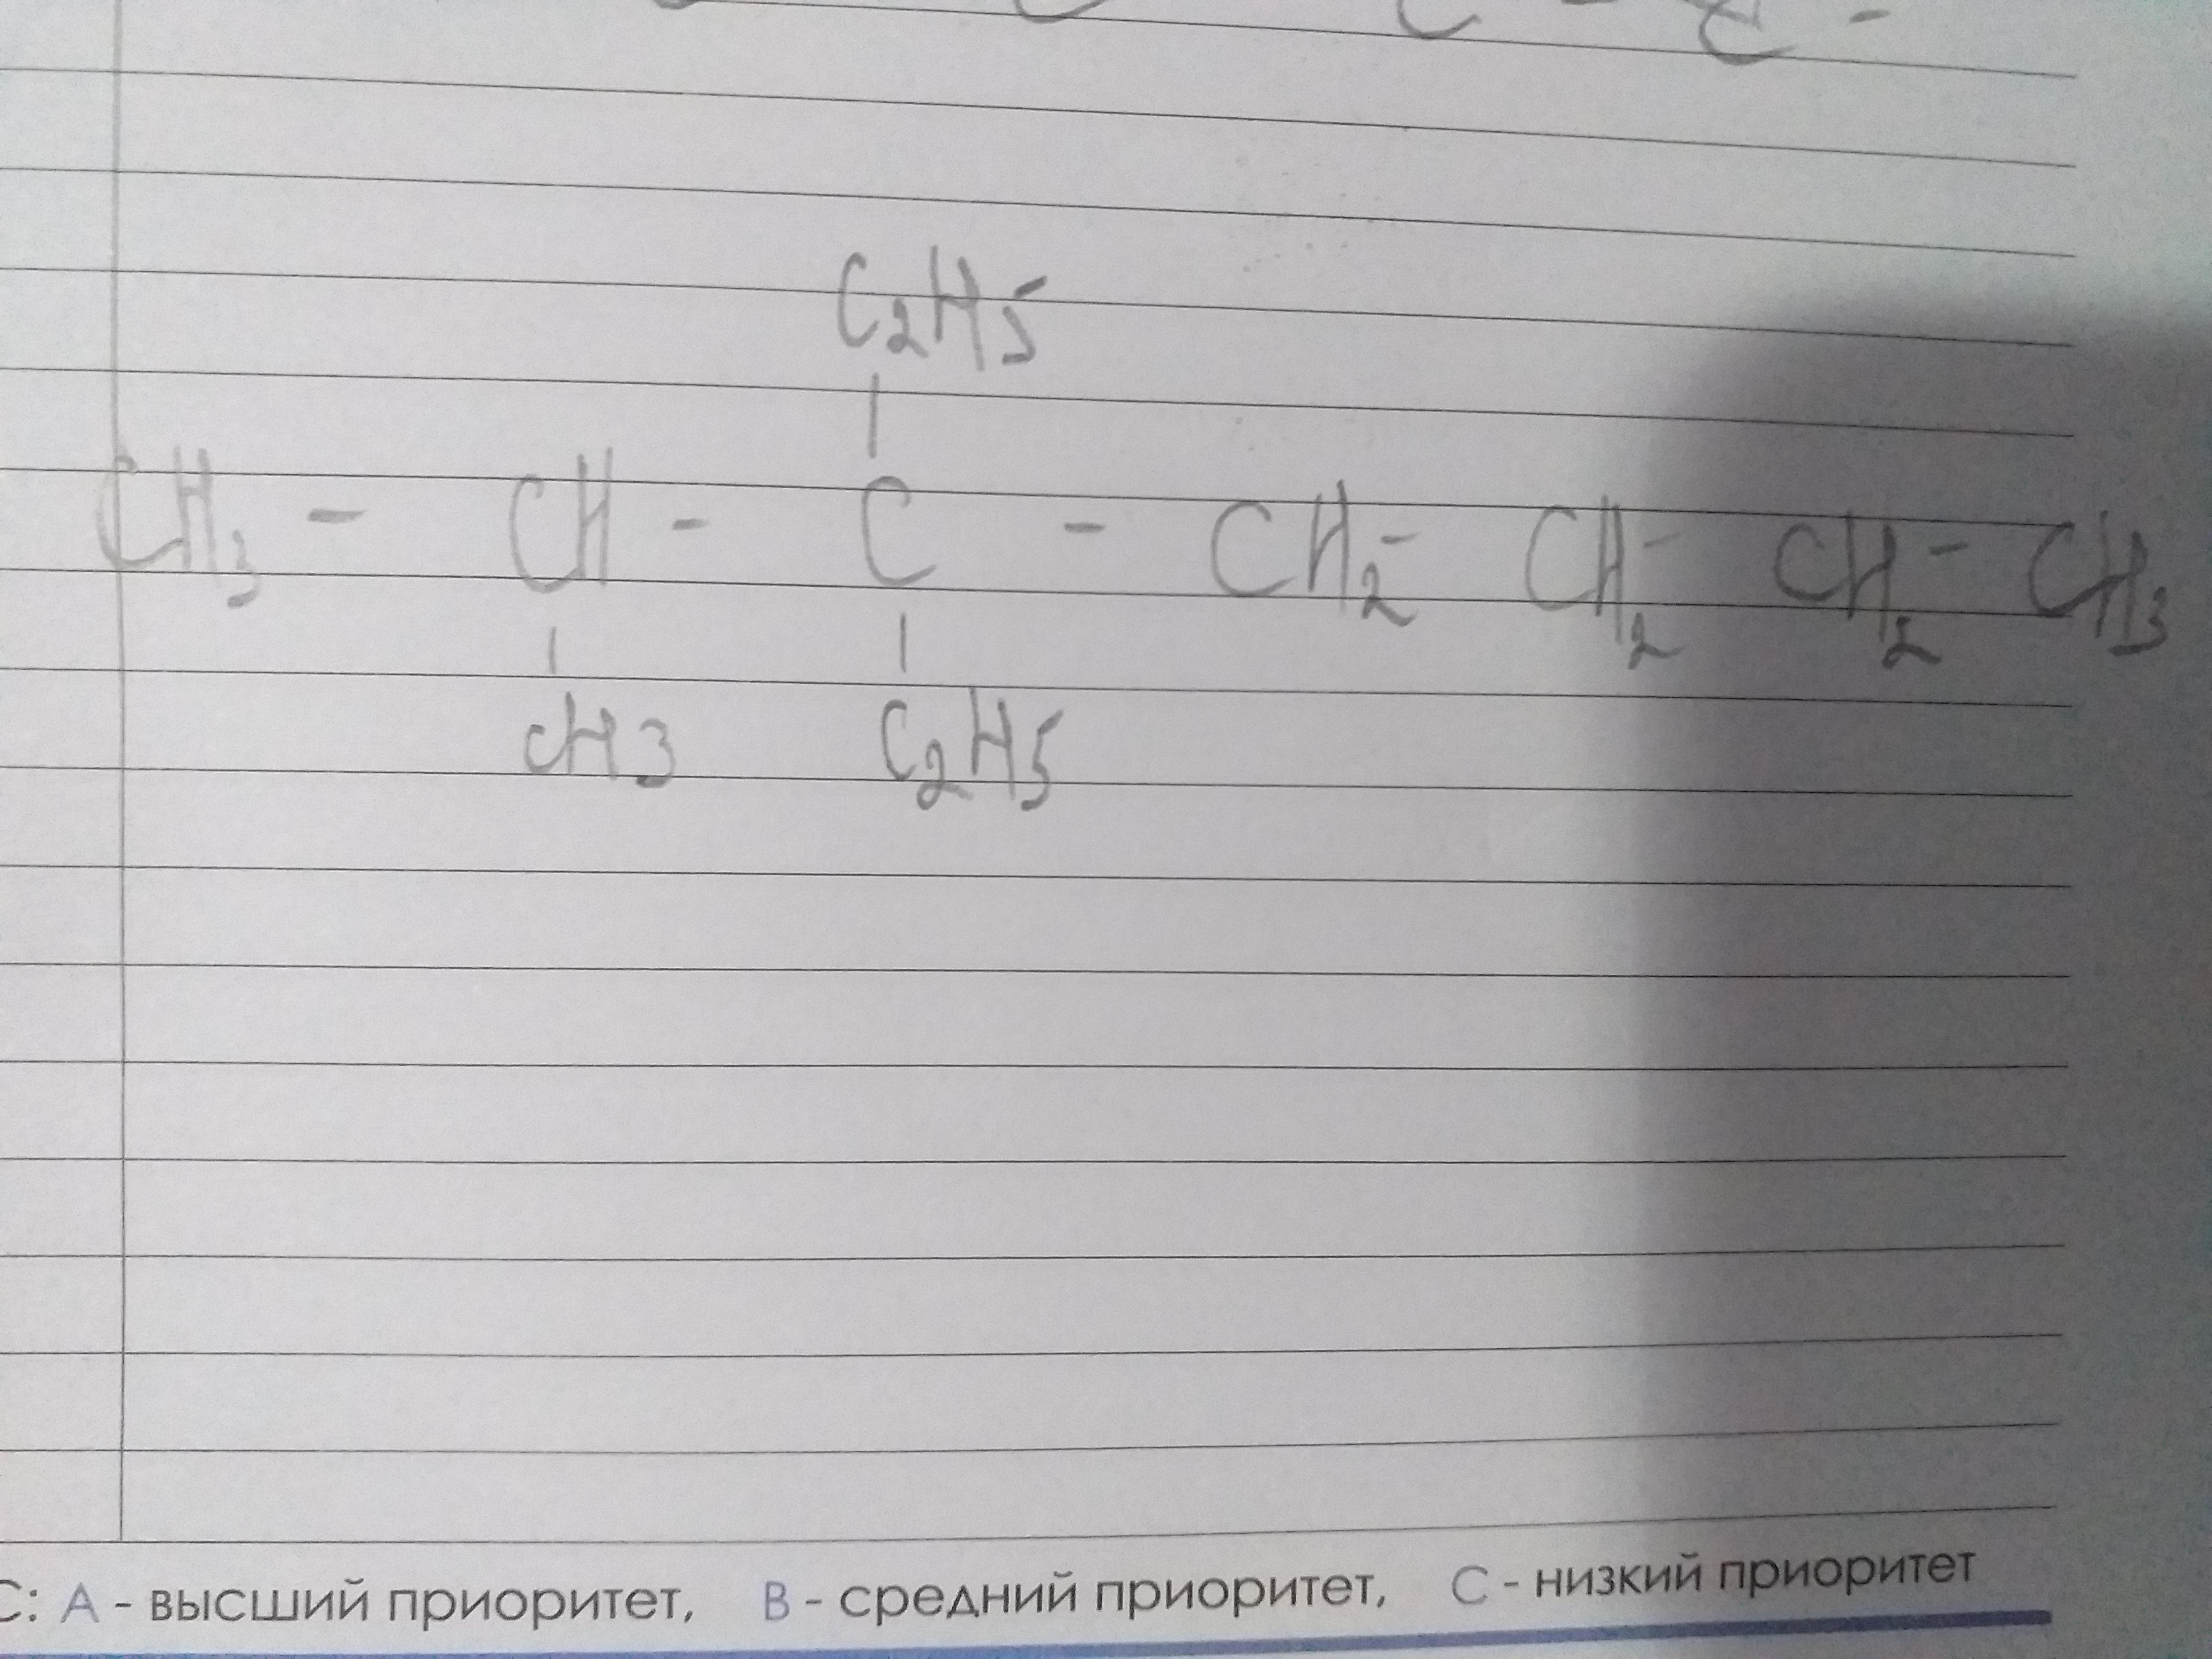 C2H5
CH3 - CH - C - CH2 - CH2 - CH2 - CH3
CH3 C2H5
С: А - высший приоритет, В - средний приоритет, С - низкий приоритет